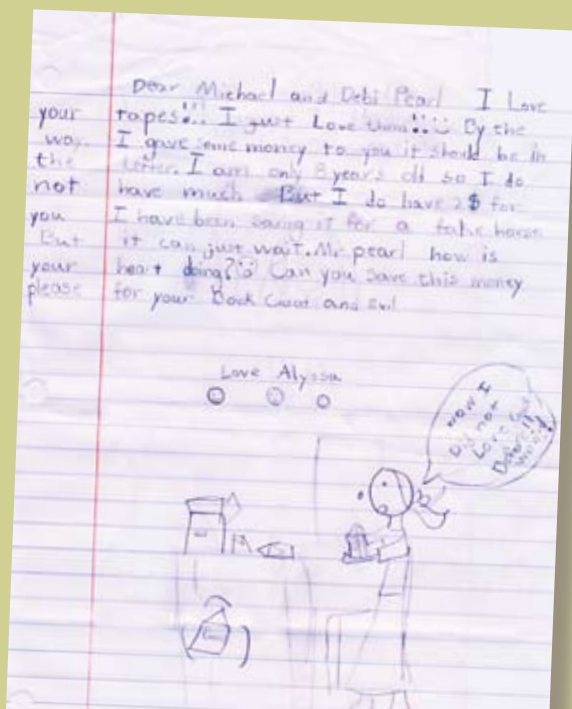 Dear Michael and Debi Pearl I Love
your tapes!!.. I just Love them!!.. By the
way. I gave some money to you it should be in
the letter. I am only 8 years old so I do
not have much But I do have 2$ for
you I have been saving it for a fake horse
But it can just wait. Mr. pearl how is
your heart doing? Can you save this money
please for your Book Good and evil
Love Alyssa
wow I
Did not
Love God
Before